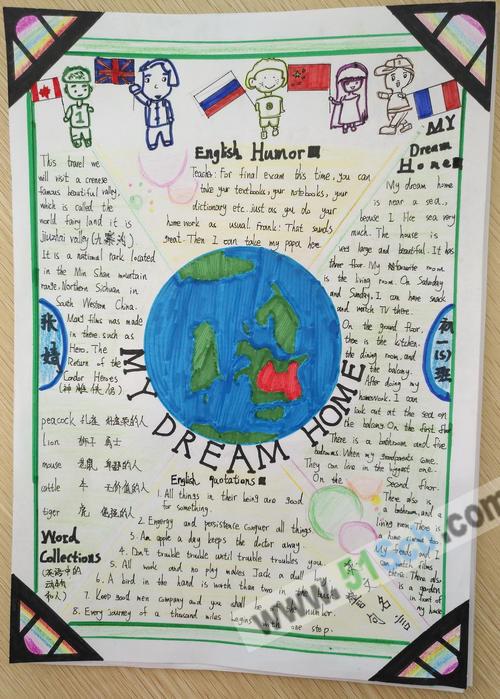 English Humor
Teacher: For final exam this time, you can
take your textbooks, your notebooks, your
dictionary etc. just as you do your
home work as usual. Frank: That sounds
great. Then I can take my papa here.
This travel we
will visit a crenese
famous beautiful valley,
which is called the
world fairy land it is
jiuzhai valley (九寨沟).
It is a national park located
in the Min Shan mountain
range, Northern Sichuan in
South Western China.
Many films was made
in there. such as
Hero, The
Return of the
Condor Heroes
(神雕侠侣)
peacock 孔雀
Lion 狮子 勇士
mouse 老鼠
cattle 牛 无价值的人
tiger 虎
Word
Collections
(英语中的
动物
和人)
MY
Dream
Home
My dream home
is near a sea.,
beause I like sea very
much. The house is
very large and beautiful. It has
three floor. My favourite room
is the living room. On Saturday
and Sunday, I can have snack
and watch TV there.
On the ground floor,
there is the kitchen,
the dining room, and
the balcony.
After doing my
homework. I can
look out at the sea on
the balcony On the first floor
There is a bathroom and five
bedrooms. When my grandparents come.
They can live in the biggest one.
On the Second floor.
There also is
a bathroom, and a
living room. There is
a home cinema too
My friends and I
can watch films
there. There also
is a garden
in front of
my house
MY DREAM HOME
English quotations
1. All things in their being are good
for something.
2. Energy and persistence conquer all things.
3. An apple a day keeps the doctor away.
4. Don't trouble trouble until trouble troubles you.
5. All work and no play makes Jack a dull boy.
6. A bird in the hand is worth than two in the bush
7. Keep good men company and you shall be of the number.
8. Every journey of a thousand miles begins with one step.
初一(5)班